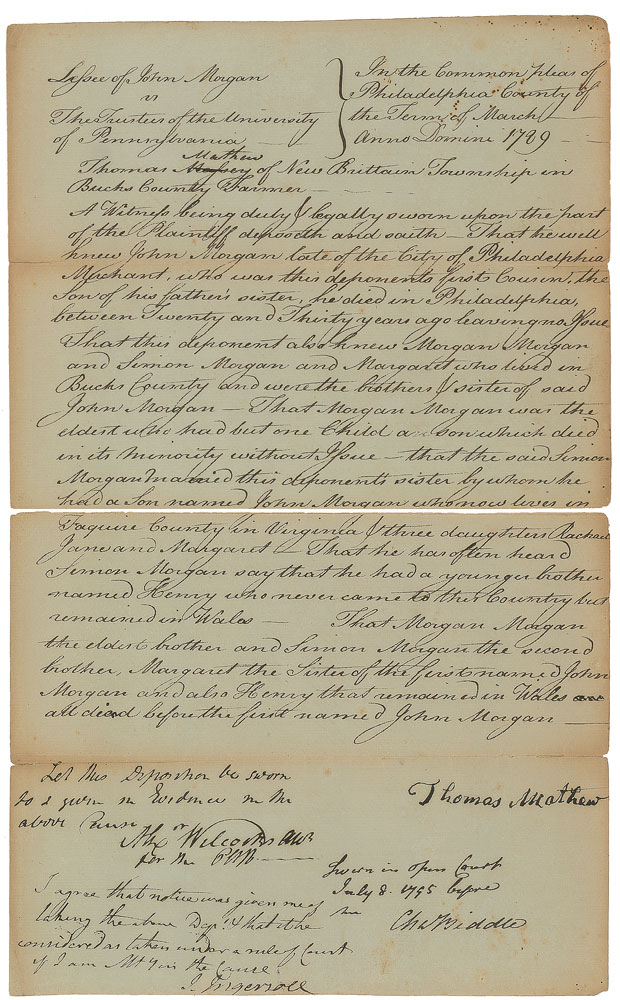 Lessee of John Morgan
vs
The Trustees of the University
of Pennsylvania
In the Common pleas of
Philadelphia County of
the Term of March
Anno Domini 1789
Mathew
Thomas of New Brittain Township in
Bucks County Farmer
A Witness being duly & legally sworn upon the part
of the Plaintiff deposeth and saith – That he well
knew John Morgan late of the City of Philadelphia
Merchant, who was this deponents first Cousin, the
Son of his father's sister, he died in Philadelphia,
between Twenty and Thirty years ago leaving no Issue
That this deponent also knew Morgan Morgan
and Simon Morgan and Margaret who lived in
Bucks County and were the brothers & sister of said
John Morgan – That Morgan Morgan was the
eldest who had but one Child a son which died
in its minority without Issue – that the said Simon
Morgan married this deponents sister by whom he
had a Son named John Morgan who now lives in
Faquire County in Virginia & three daughters Rachael
Jane and Margaret – That he has often heard
Simon Morgan say that he had a younger brother
named Henry who never came to this Country but
remained in Wales – That Morgan Morgan
the eldest brother and Simon Morgan the second
brother, Margaret the Sister of the first named John
Morgan and also Henry that remained in Wales are
all died before the first named John Morgan –
Let this Deposition be sworn
to & given in Evidence in the
above Cause
Alexr Wilcocks
for the
Thomas Mathew
Sworn in open Court
July 8. 1795 before
me
Cha Biddle
I agree that notice was given me of
taking the above Depn & that it be
considered as taken under a rule of Court
if I am Atty in the Cause.
J. Ingersoll